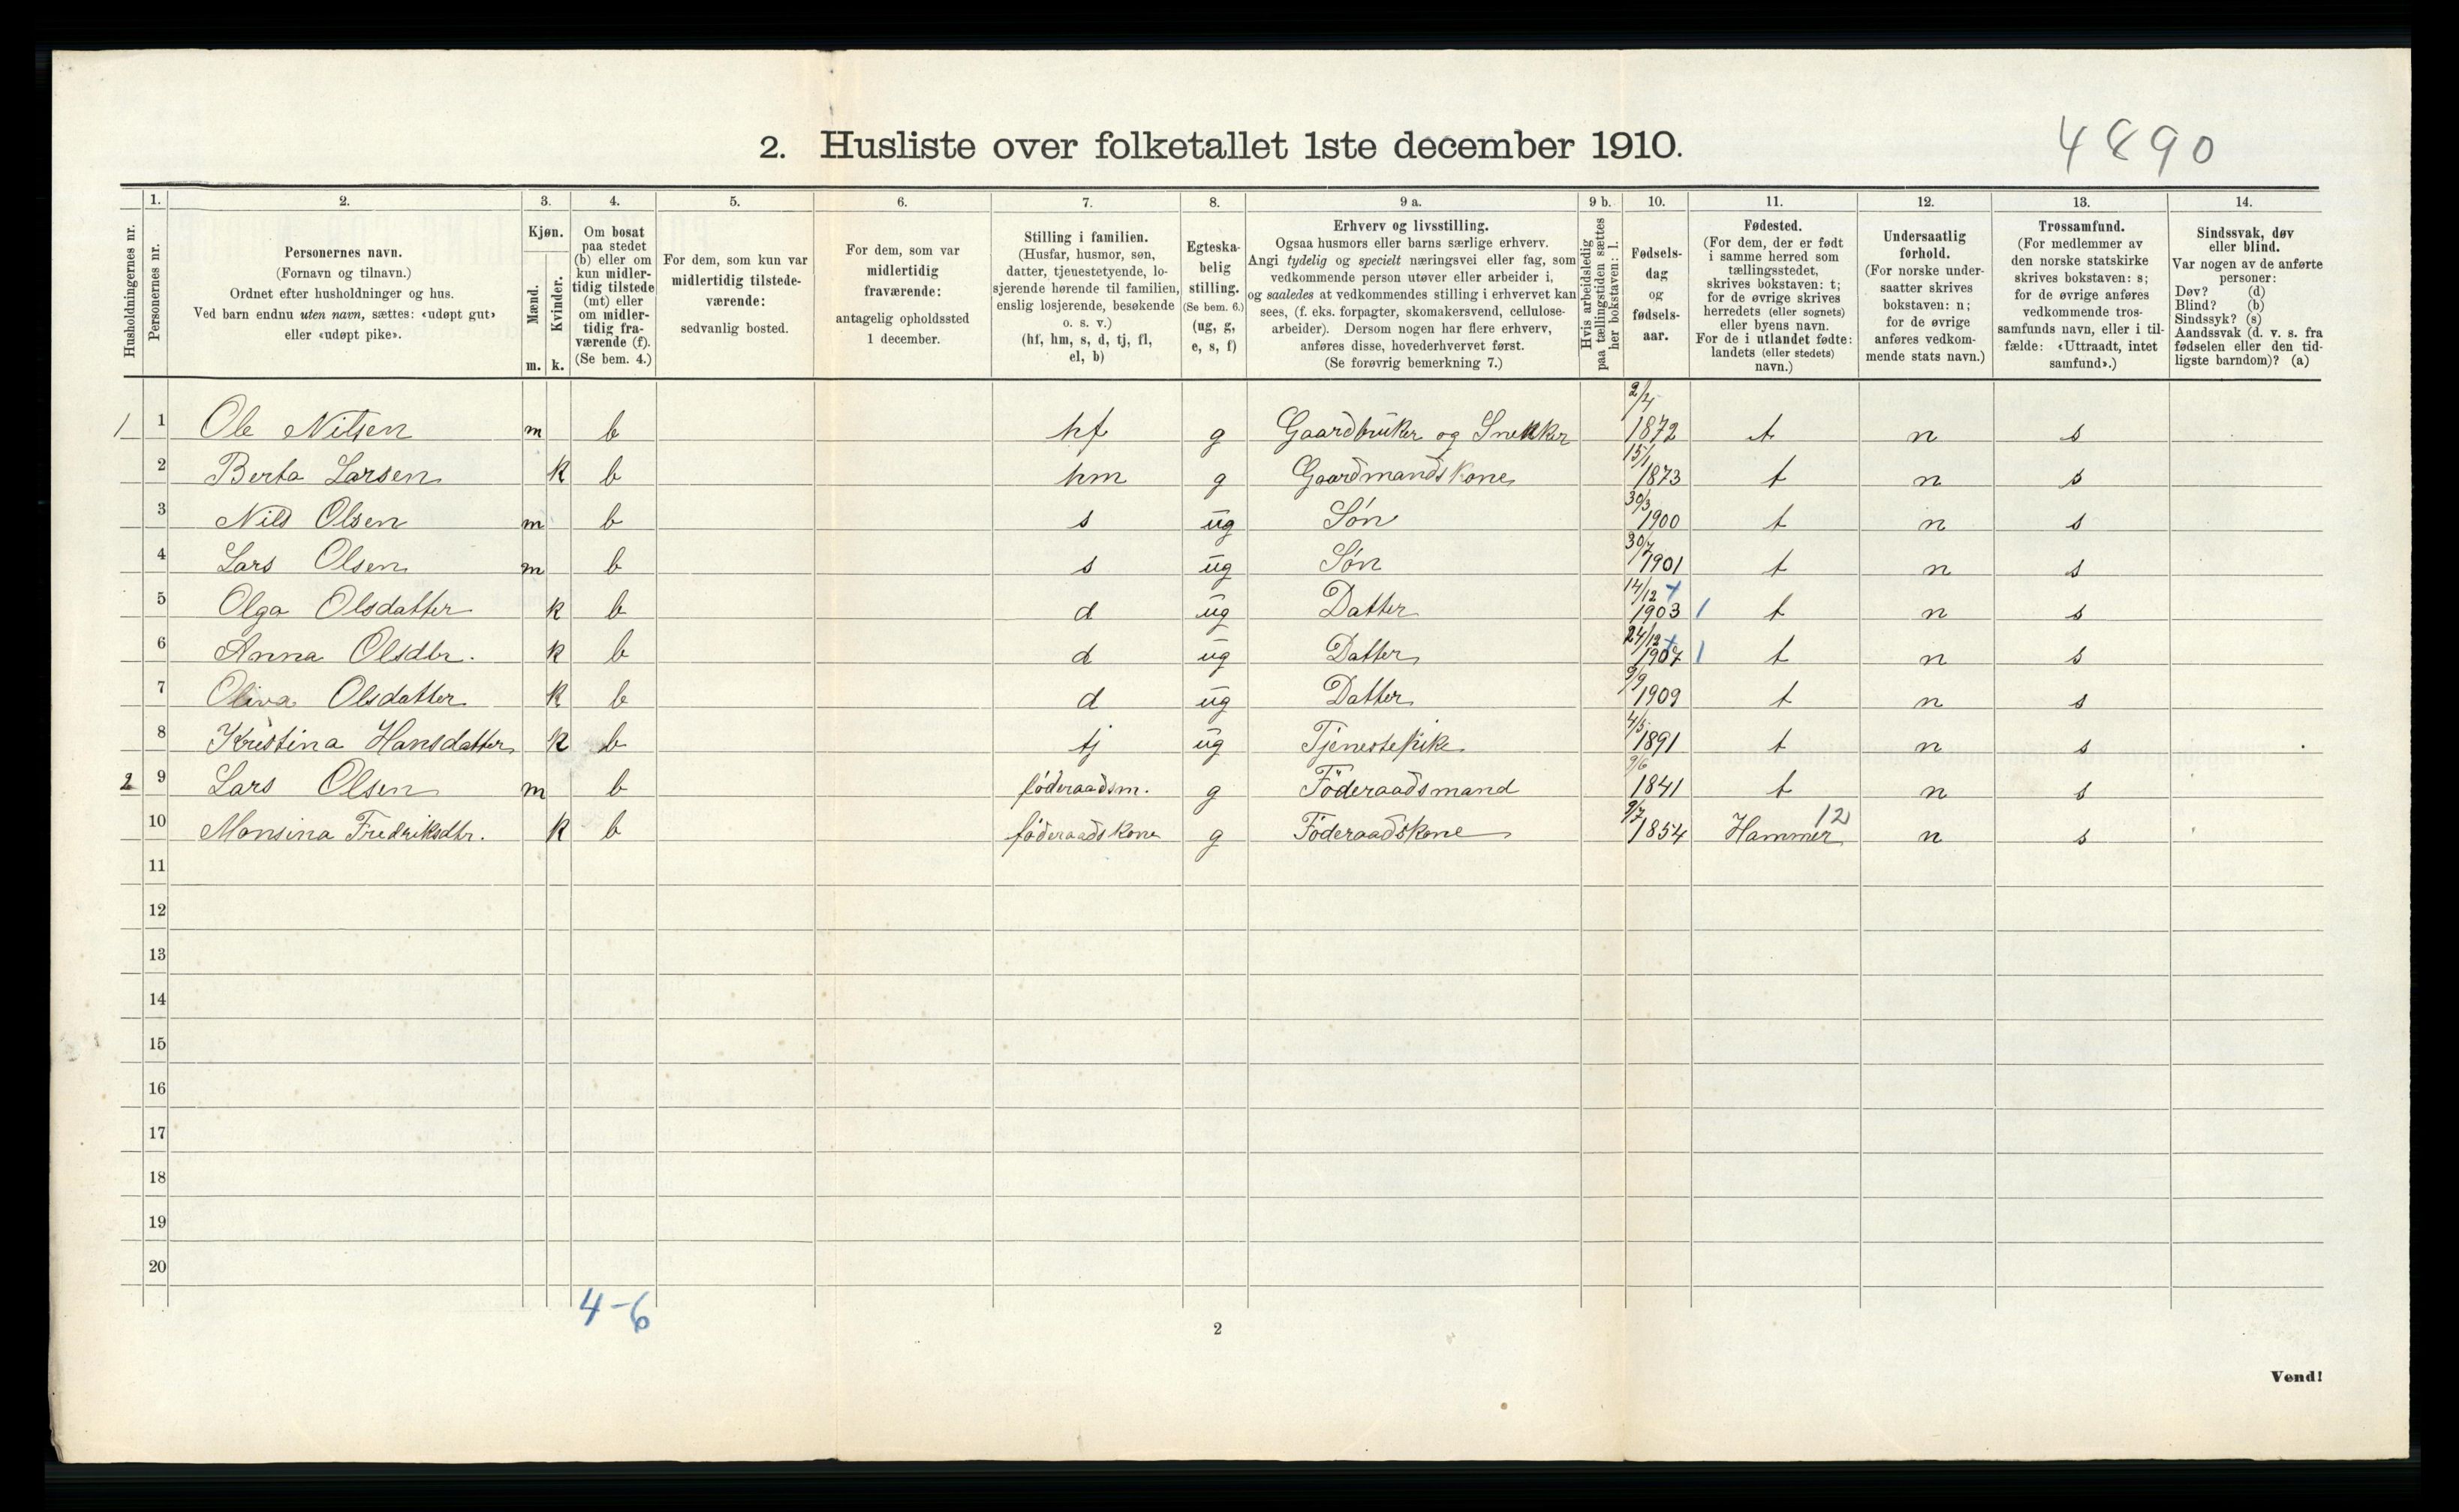 4890
2. Husliste over folketallet 1ste december 1910.
Husholdningernes nr.
1. Personernes nr.
2. Personernes navn.
(Fornavn og tilnavn.)
Ordnet efter husholdninger og hus.
Ved barn endnu uten navn, sættes: «udøpt gut»
eller «udøpt pike».
3. Kjøn.
Mænd. m.
Kvinder. k.
4. Om bosat
paa stedet
(b) eller om
kun midler-
tidig tilstede
(mt) eller
om midler-
tidig fra-
værende (f).
(Se bem. 4.)
5. For dem, som kun var
midlertidig tilstede-
værende:
sedvanlig bosted.
6. For dem, som var
midlertidig
fraværende:
antagelig opholdssted
1 december.
7. Stilling i familien.
(Husfar, husmor, søn,
datter, tjenestetyende, lo-
sjerende hørende til familien,
enslig losjerende, besøkende
o. s. v.)
(hf, hm, s, d, tj, fl,
el, b)
8. Egteska-
belig
stilling.
(Se bem. 6.)
(ug, g,
e, s, f)
9 a. Erhverv og livsstilling.
Ogsaa husmors eller barns særlige erhverv.
Angi tydelig og specielt næringsvei eller fag, som
vedkommende person utøver eller arbeider i,
og saaledes at vedkommendes stilling i erhvervet kan
sees, (f. eks. forpagter, skomakersvend, cellulose-
arbeider). Dersom nogen har flere erhverv,
anføres disse, hovederhvervet først.
(Se forøvrig bemerkning 7.)
9 b. Hvis arbeidsledig
paa tællingstiden sættes
her bokstaven: l.
10. Fødsels-
dag
og
fødsels-
aar.
11. Fødested.
(For dem, der er født
i samme herred som
tællingsstedet,
skrives bokstaven: t;
for de øvrige skrives
herredets (eller sognets)
eller byens navn.
For de i utlandet fødte:
landets (eller stedets)
navn.)
12. Undersaatlig
forhold.
(For norske under-
saatter skrives
bokstaven: n;
for de øvrige
anføres vedkom-
mende stats navn.)
13. Trossamfund.
(For medlemmer av
den norske statskirke
skrives bokstaven: s;
for de øvrige anføres
vedkommende tros-
samfunds navn, eller i til-
fælde: «Uttraadt, intet
samfund».)
14. Sindssvak, døv
eller blind.
Var nogen av de anførte
personer:
Døv? (d)
Blind? (b)
Sindssyk? (s)
Aandssvak (d. v. s. fra
fødselen eller den tid-
ligste barndom)? (a)
1 1 Ole Nilsen m b hf g Gaardbruker og Snekker 2/4 1872 t n s
2 Berta Larsen k b hm g Gaardmandskone 15/1 1873 t n s
3 Nils Olsen m b s ug Søn 30/3 1900 t n s
4 Lars Olsen m b s ug Søn 30/7 1901 t n s
5 Olga Olsdatter k b d ug Datter 14/12 + 1903 1 t n s
6 Anna Olsdtr. k b d ug Datter 24/12 + 1907 1 t n s
7 Oliva Olsdatter k b d ug Datter 9/9 1909 t n s
8 Kristina Hansdatter k b tj ug Tjenestepike 4/5 1891 t n s
2 9 Lars Olsen m b föderaadsm. g Föderaadsmand 9/6 1841 t n s
10 Monsina Fredriksdtr. k b föderaadskone g Föderaadskone 9/7 1854 Hammer 12 n s
11
12
13
14
15
16
17
18
19
20
4-6
2
Vend!